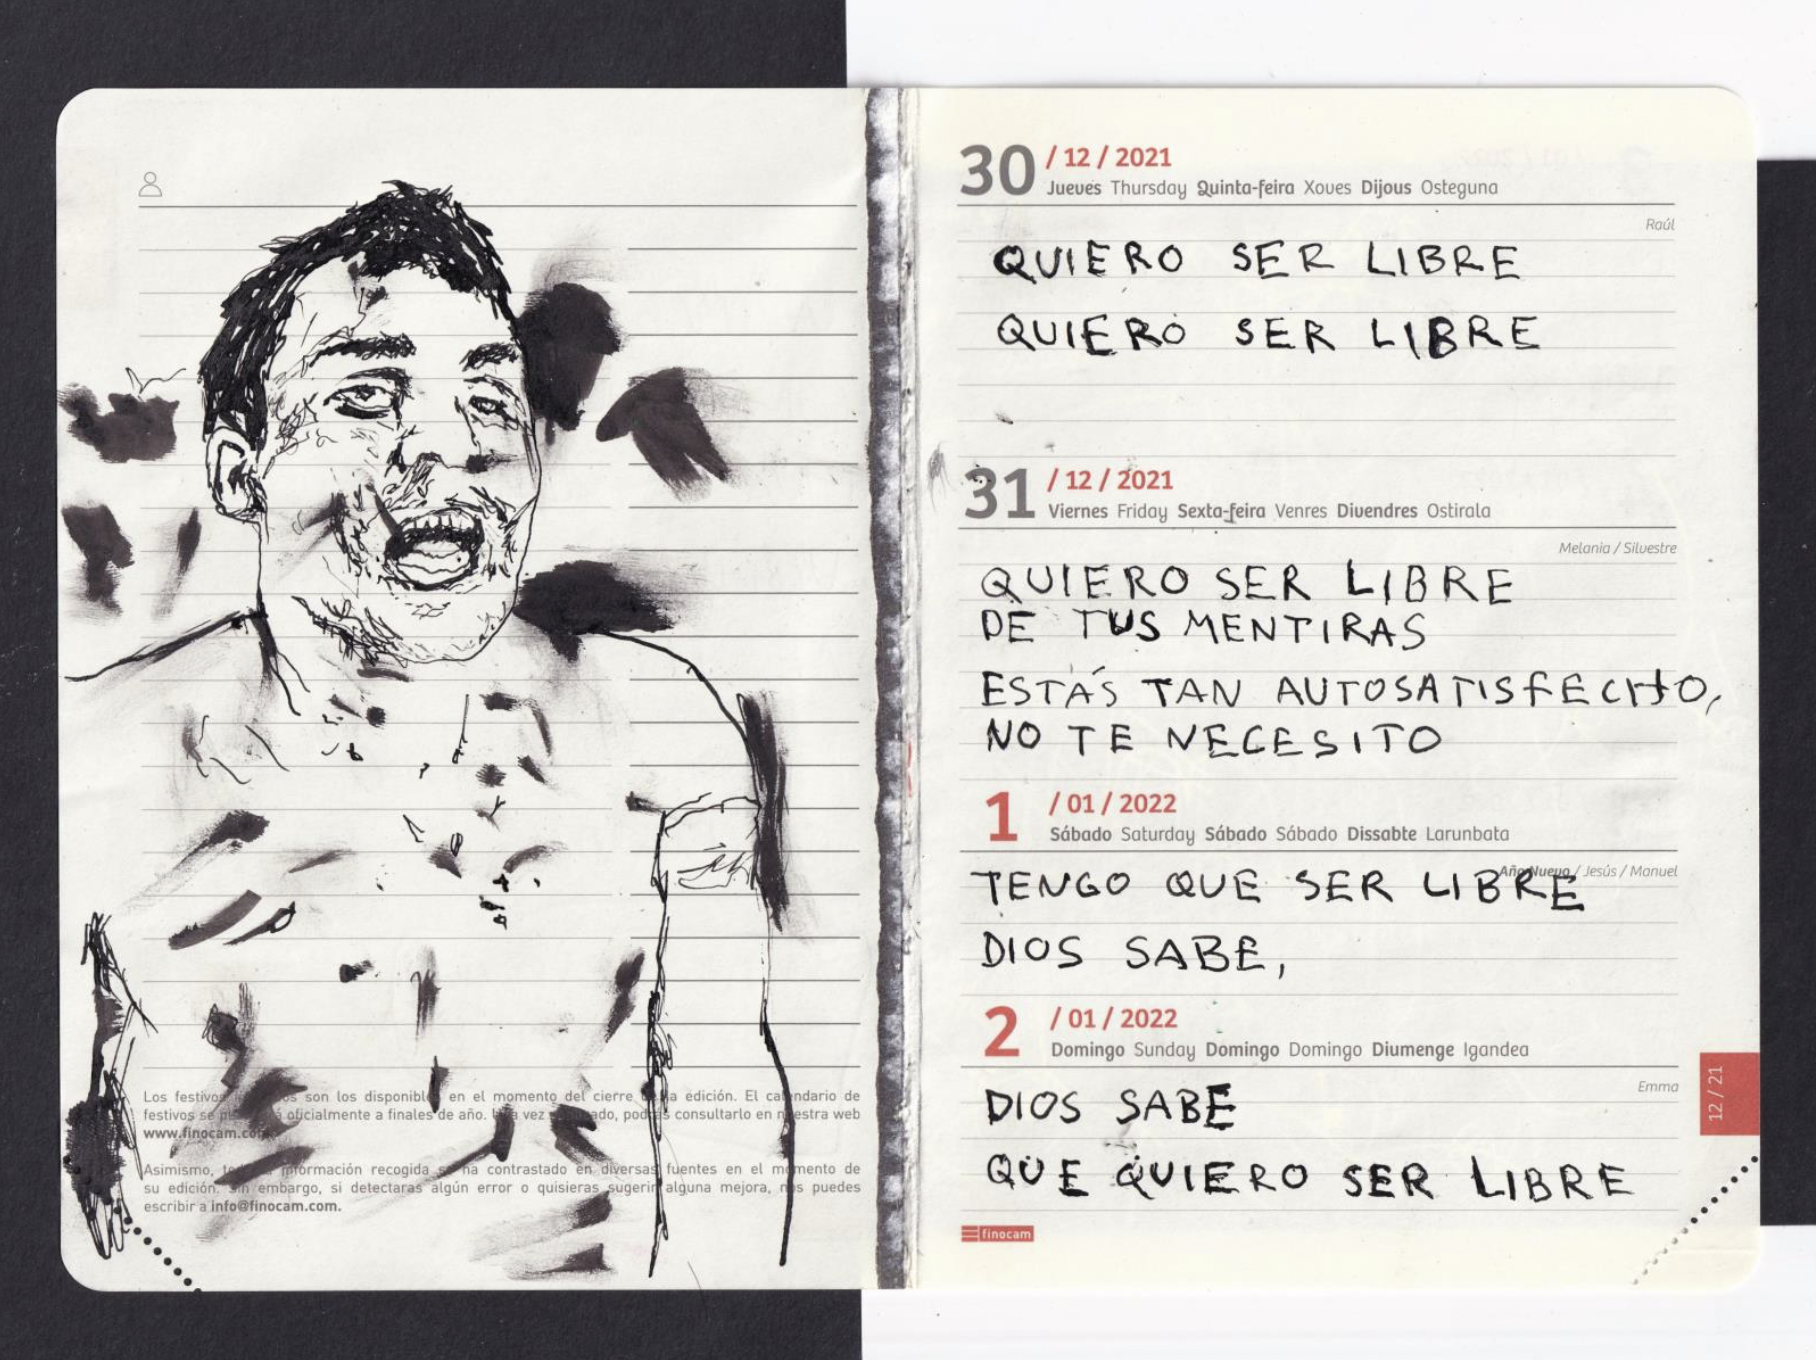 Los festivos son los disponibles en el momento del cierre de la edición. El calendario de
festivos se oficialmente a finales de año. Una vez podrás consultarlo en nuestra web
www.finocam.com
Asimismo, toda la información recogida se ha contrastado en diversas fuentes en el momento de
su edición. Sin embargo, si detectaras algún error o quisieras sugerir alguna mejora, nos puedes
escribir a info@finocam.com.
30 / 12 / 2021
Jueves Thursday Quinta-feira Xoves Dijous Osteguna
Raúl
QUIERO SER LIBRE
QUIERO SER LIBRE
31 / 12 / 2021
Viernes Friday Sexta-feira Venres Divendres Ostirala
Melania / Silvestre
QUIERO SER LIBRE
DE TUS MENTIRAS
ESTÁS TAN AUTOSATISFECHO,
NO TE NECESITO
1 / 01 / 2022
Sábado Saturday Sábado Sábado Dissabte Larunbata
Año Nuevo / Jesús / Manuel
TENGO QUE SER LIBRE
DIOS SABE,
2 / 01 / 2022
Domingo Sunday Domingo Domingo Diumenge Igandea
Emma
DIOS SABE
QUE QUIERO SER LIBRE
12 / 21
finocam